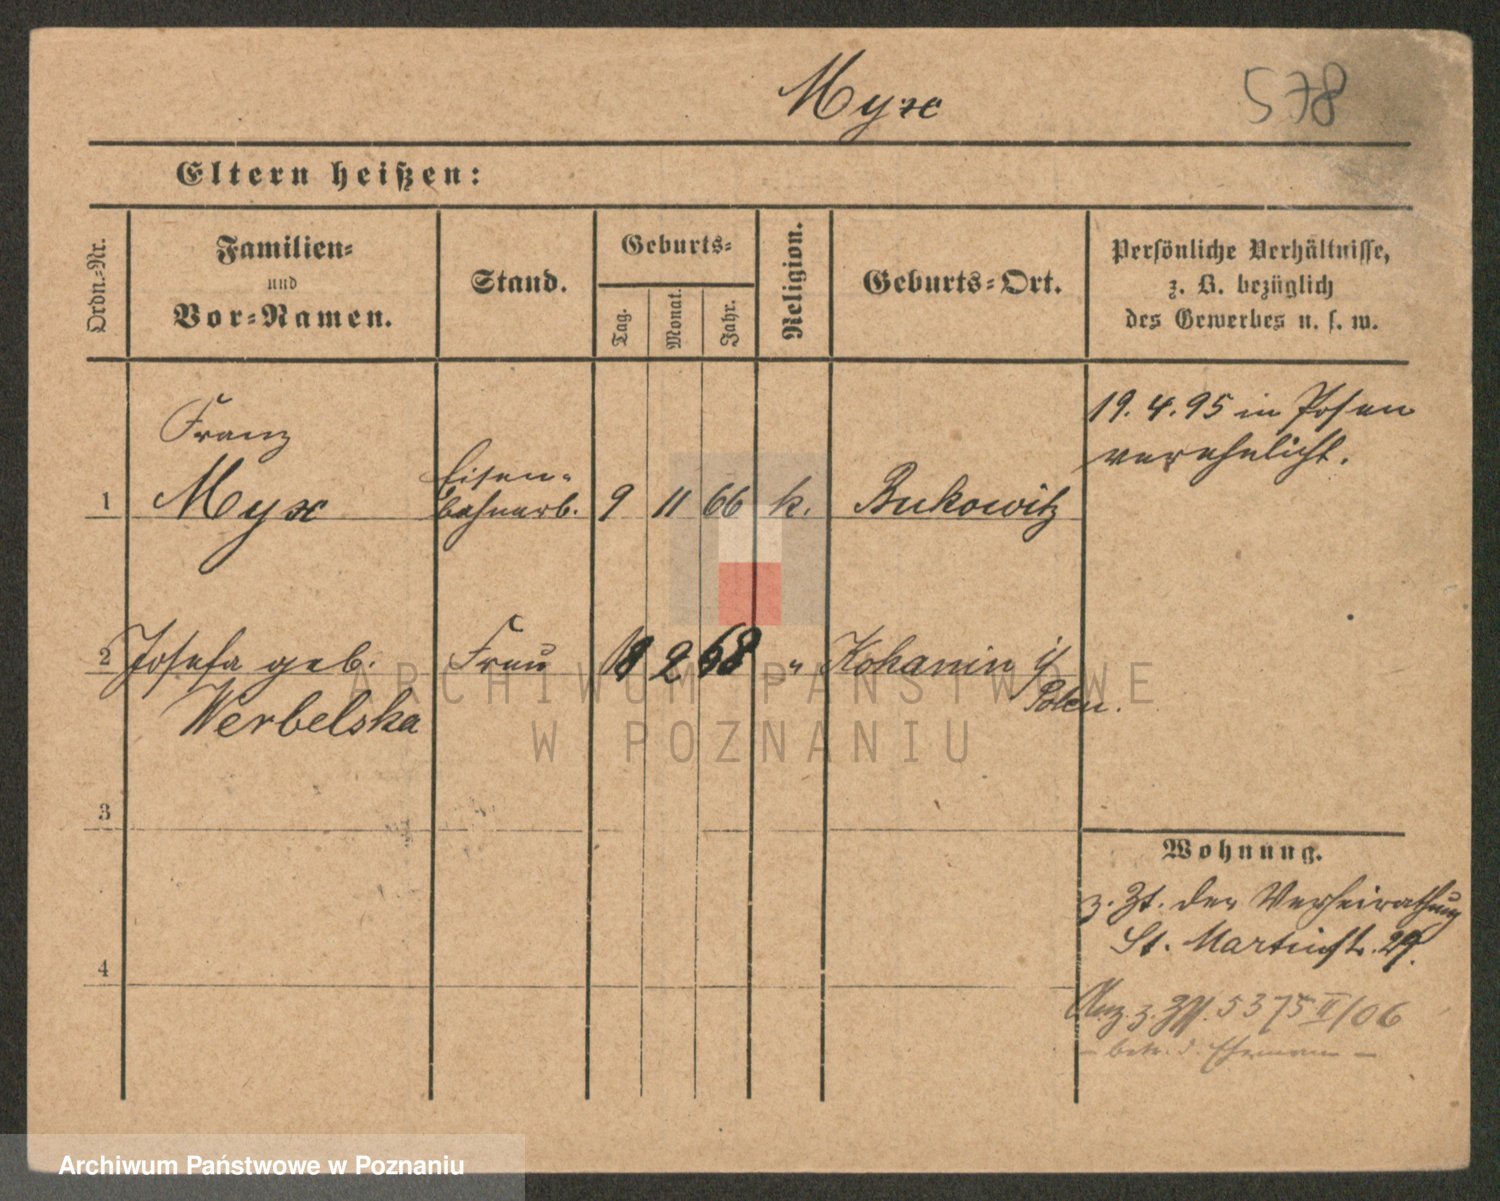 Myx
578
Eltern heißen:
Ordn.-Nr.
Familien-
und
Vor-Namen.
Stand.
Geburts-
Tag.
Monat.
Jahr.
Religion.
Geburts-Ort.
Persönliche Verhältnisse,
z. B. bezüglich
des Gewerbes u. s. w.
Franz
1 Myx
Eisen-
bahnarb.
9 11 66 k. Bukowitz
19. 4. 95 in Posen
verehelicht.
2 Josefa geb.
Werbelska
Frau 18 2 68 " Kokanin i/
Polen.
3
4
Wohnung.
z. Zt. der Verheirathung
St. Martinstr. 29.
5375 II/06
- betr. d. Ehemann -
ARCHIWUM PAŃSTWOWE
W POZNANIU
Archiwum Państwowe w Poznaniu